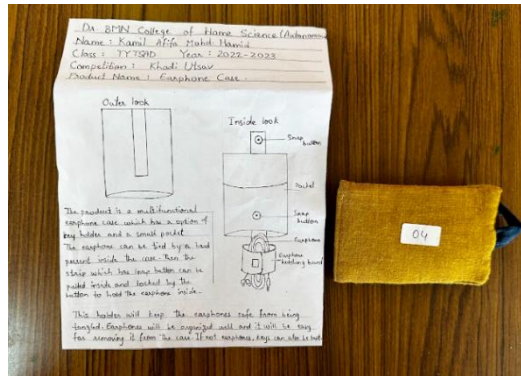 Dr BMN College of Home Science (Autonomous
Name : Kamil Afifa Mohd Hamid
Class : TYTSAD Year : 2022-2023
Competition : Khadi Utsav
Product Name : Earphone Case.
Outer look
Inside look
Snap button
Pocket
Snap button
Earphone
Earphone holding band
The product is a multifunctional
earphone case which has a option of
key holder and a small pocket
The earphone can be tied by a band
present inside the case. Then the
strip which has snap button can be
pulled inside and locked by the
button to hold the earphone inside.
This holder will keep the earphones safe from being
tangled. Earphones will be organized well and it will be easy
for removing it from the case. If not earphones, keys can also be
04